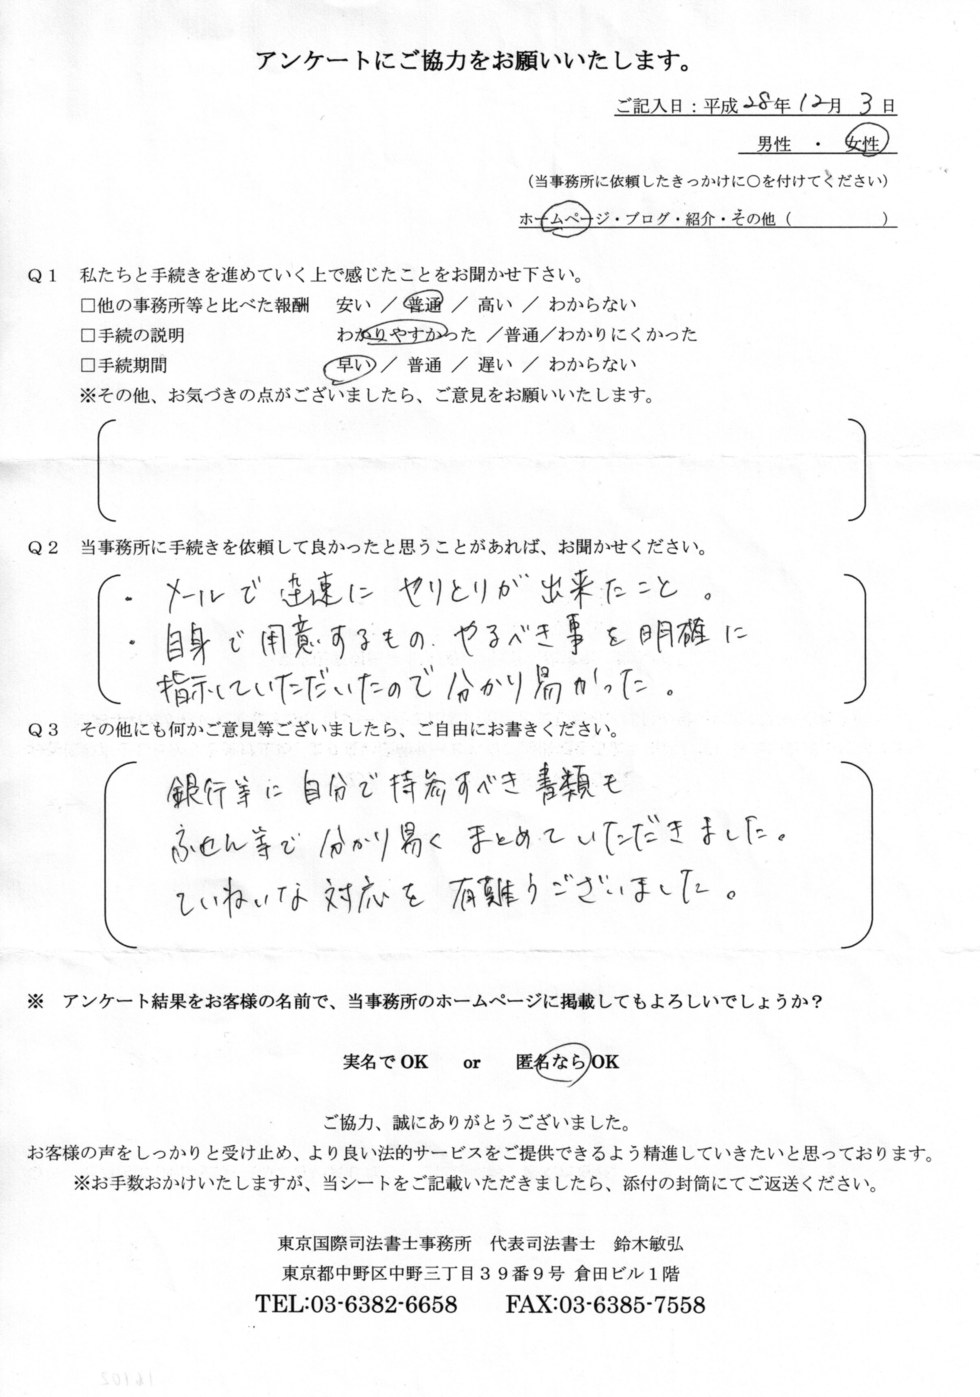 アンケートにご協力をお願いいたします。
ご記入日：平成28年12月3日
男性 ・ 女性
（当事務所に依頼したきっかけに○を付けてください）
ホームページ・ブログ・紹介・その他（　　　　　　）
Q１ 私たちと手続きを進めていく上で感じたことをお聞かせ下さい。
□他の事務所等と比べた報酬 安い ／ 普通 ／ 高い ／ わからない
□手続の説明 わかりやすかった ／普通／わかりにくかった
□手続期間 早い ／ 普通 ／ 遅い ／ わからない
※その他、お気づきの点がございましたら、ご意見をお願いいたします。
Q２ 当事務所に手続きを依頼して良かったと思うことがあれば、お聞かせください。
・メールで迅速にやりとりが出来たこと。
・自身で用意するもの、やるべき事を明確に
指示していただいたので分かり易かった。
Q３ その他にも何かご意見等ございましたら、ご自由にお書きください。
銀行等に自分で持参すべき書類も
ふせん等で分かり易くまとめていただきました。
ていねいな対応を有難うございました。
※ アンケート結果をお客様の名前で、当事務所のホームページに掲載してもよろしいでしょうか？
実名でOK or 匿名ならOK
ご協力、誠にありがとうございました。
お客様の声をしっかりと受け止め、より良い法的サービスをご提供できるよう精進していきたいと思っております。
※お手数おかけいたしますが、当シートをご記載いただきましたら、添付の封筒にてご返送ください。
東京国際司法書士事務所 代表司法書士 鈴木敏弘
東京都中野区中野三丁目３９番９号 倉田ビル１階
TEL:03-6382-6658 FAX:03-6385-7558